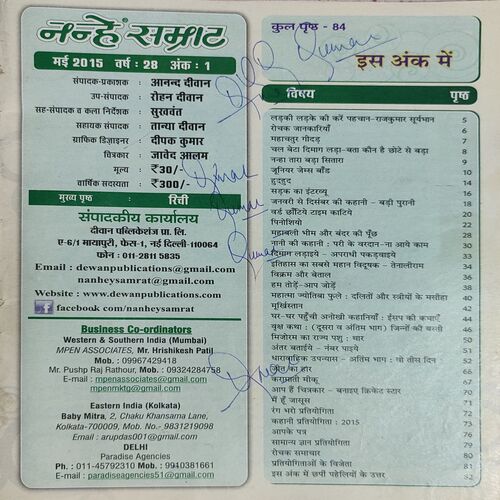 नन्हें सम्राट
मई 2015 वर्ष : 28 अंक : 1
संपादक-प्रकाशक : आनन्द दीवान
उप-संपादक : रोहन दीवान
सह-संपादक व कला निर्देशक : सुखवंत
सहायक संपादक : तान्या दीवान
ग्राफिक डिज़ाइनर : दीपक कुमार
चित्रकार : जावेद आलम
मूल्य : ₹30/-
वार्षिक सदस्यता : ₹300/-
मुख्य पृष्ठ : रिची
संपादकीय कार्यालय
दीवान पब्लिकेशंज प्रा. लि.
ए-6/1 मायापुरी, फेस-1, नई दिल्ली-110064
फोन : 011-2811 5835
Email : dewanpublications@gmail.com
nanheysamrat@gmail.com
Website : www.dewanpublications.com
facebook.com/nanheysamrat
Business Co-ordinators
Western & Southern India (Mumbai)
MPEN ASSOCIATES, Mr. Hrishikesh Patil
Mob. : 09967429418
Mr. Pushp Raj Rathour, Mob. : 09324284758
E-mail : mpenassociates@gmail.com
mpenmktg@gmail.com
Eastern India (Kolkata)
Baby Mitra, 2, Chaku Khansama Lane,
Kolkata-700009, Mob. No.- 9831219098
Email : arupdas001@gmail.com
DELHI
Paradise Agencies
Ph. : 011-45792310 Mob. : 9910381661
Email : paradiseagencies51@gmail.com
कुल पृष्ठ - 84
इस अंक में
विषय पृष्ठ
लड़की लड़के की करें पहचान-राजकुमार सूर्यभान 5
रोचक जानकारियाँ 6
महाचतुर गीदड़ 7
चल बेटा दिमाग लड़ा-बता कौन है छोटे से बड़ा 8
नन्हा तारा बड़ा सितारा 9
जूनियर जेम्स बाँड 10
हुदहुद 14
सड़क का इंटरव्यू 16
जनवरी से दिसंबर की कहानी - बड़ी पुरानी 18
वर्ड छाँटिये टाइम काटिये 20
पिनोशियो 22
महाबली भीम और बंदर की पूँछ 26
नानी की कहानी : परी के वरदान-ना आये काम 30
दिमाग लड़ाइये - अपराधी पकड़वाइये 33
इतिहास का सबसे महान विदूषक - तेनालीराम 34
विक्रम और बेताल
हम तोड़ें-आप जोड़ें
महात्मा ज्योतिबा फुले : दलितों और स्त्रीयों के मसीहा
मूर्खिस्तान
घर-घर पहुँची अनोखी कहानियाँ : ईसप की कथाएँ
वृक्ष कथा : (दूसरा व अंतिम भाग) जिन्नों की बस्ती
मिजोरम का राज्य पशु : थार
अंतर बताईये - नंबर पाइये
धारावाहिक उपन्यास - अंतिम भाग : वो तीस दिन
जीत का हार
करामाती मीकू
आप हैं चित्रकार - बनाइए क्रिकेट स्टार
मैं हूँ जासूस
रंग भरो प्रतियोगिता
कहानी प्रतियोगिता : 2015
आपके पत्र
सामान्य ज्ञान प्रतियोगिता
रोचक संसार
प्रतियोगिताओं के विजेता
इस अंक में छपीं पहेलियों के उत्तर 82